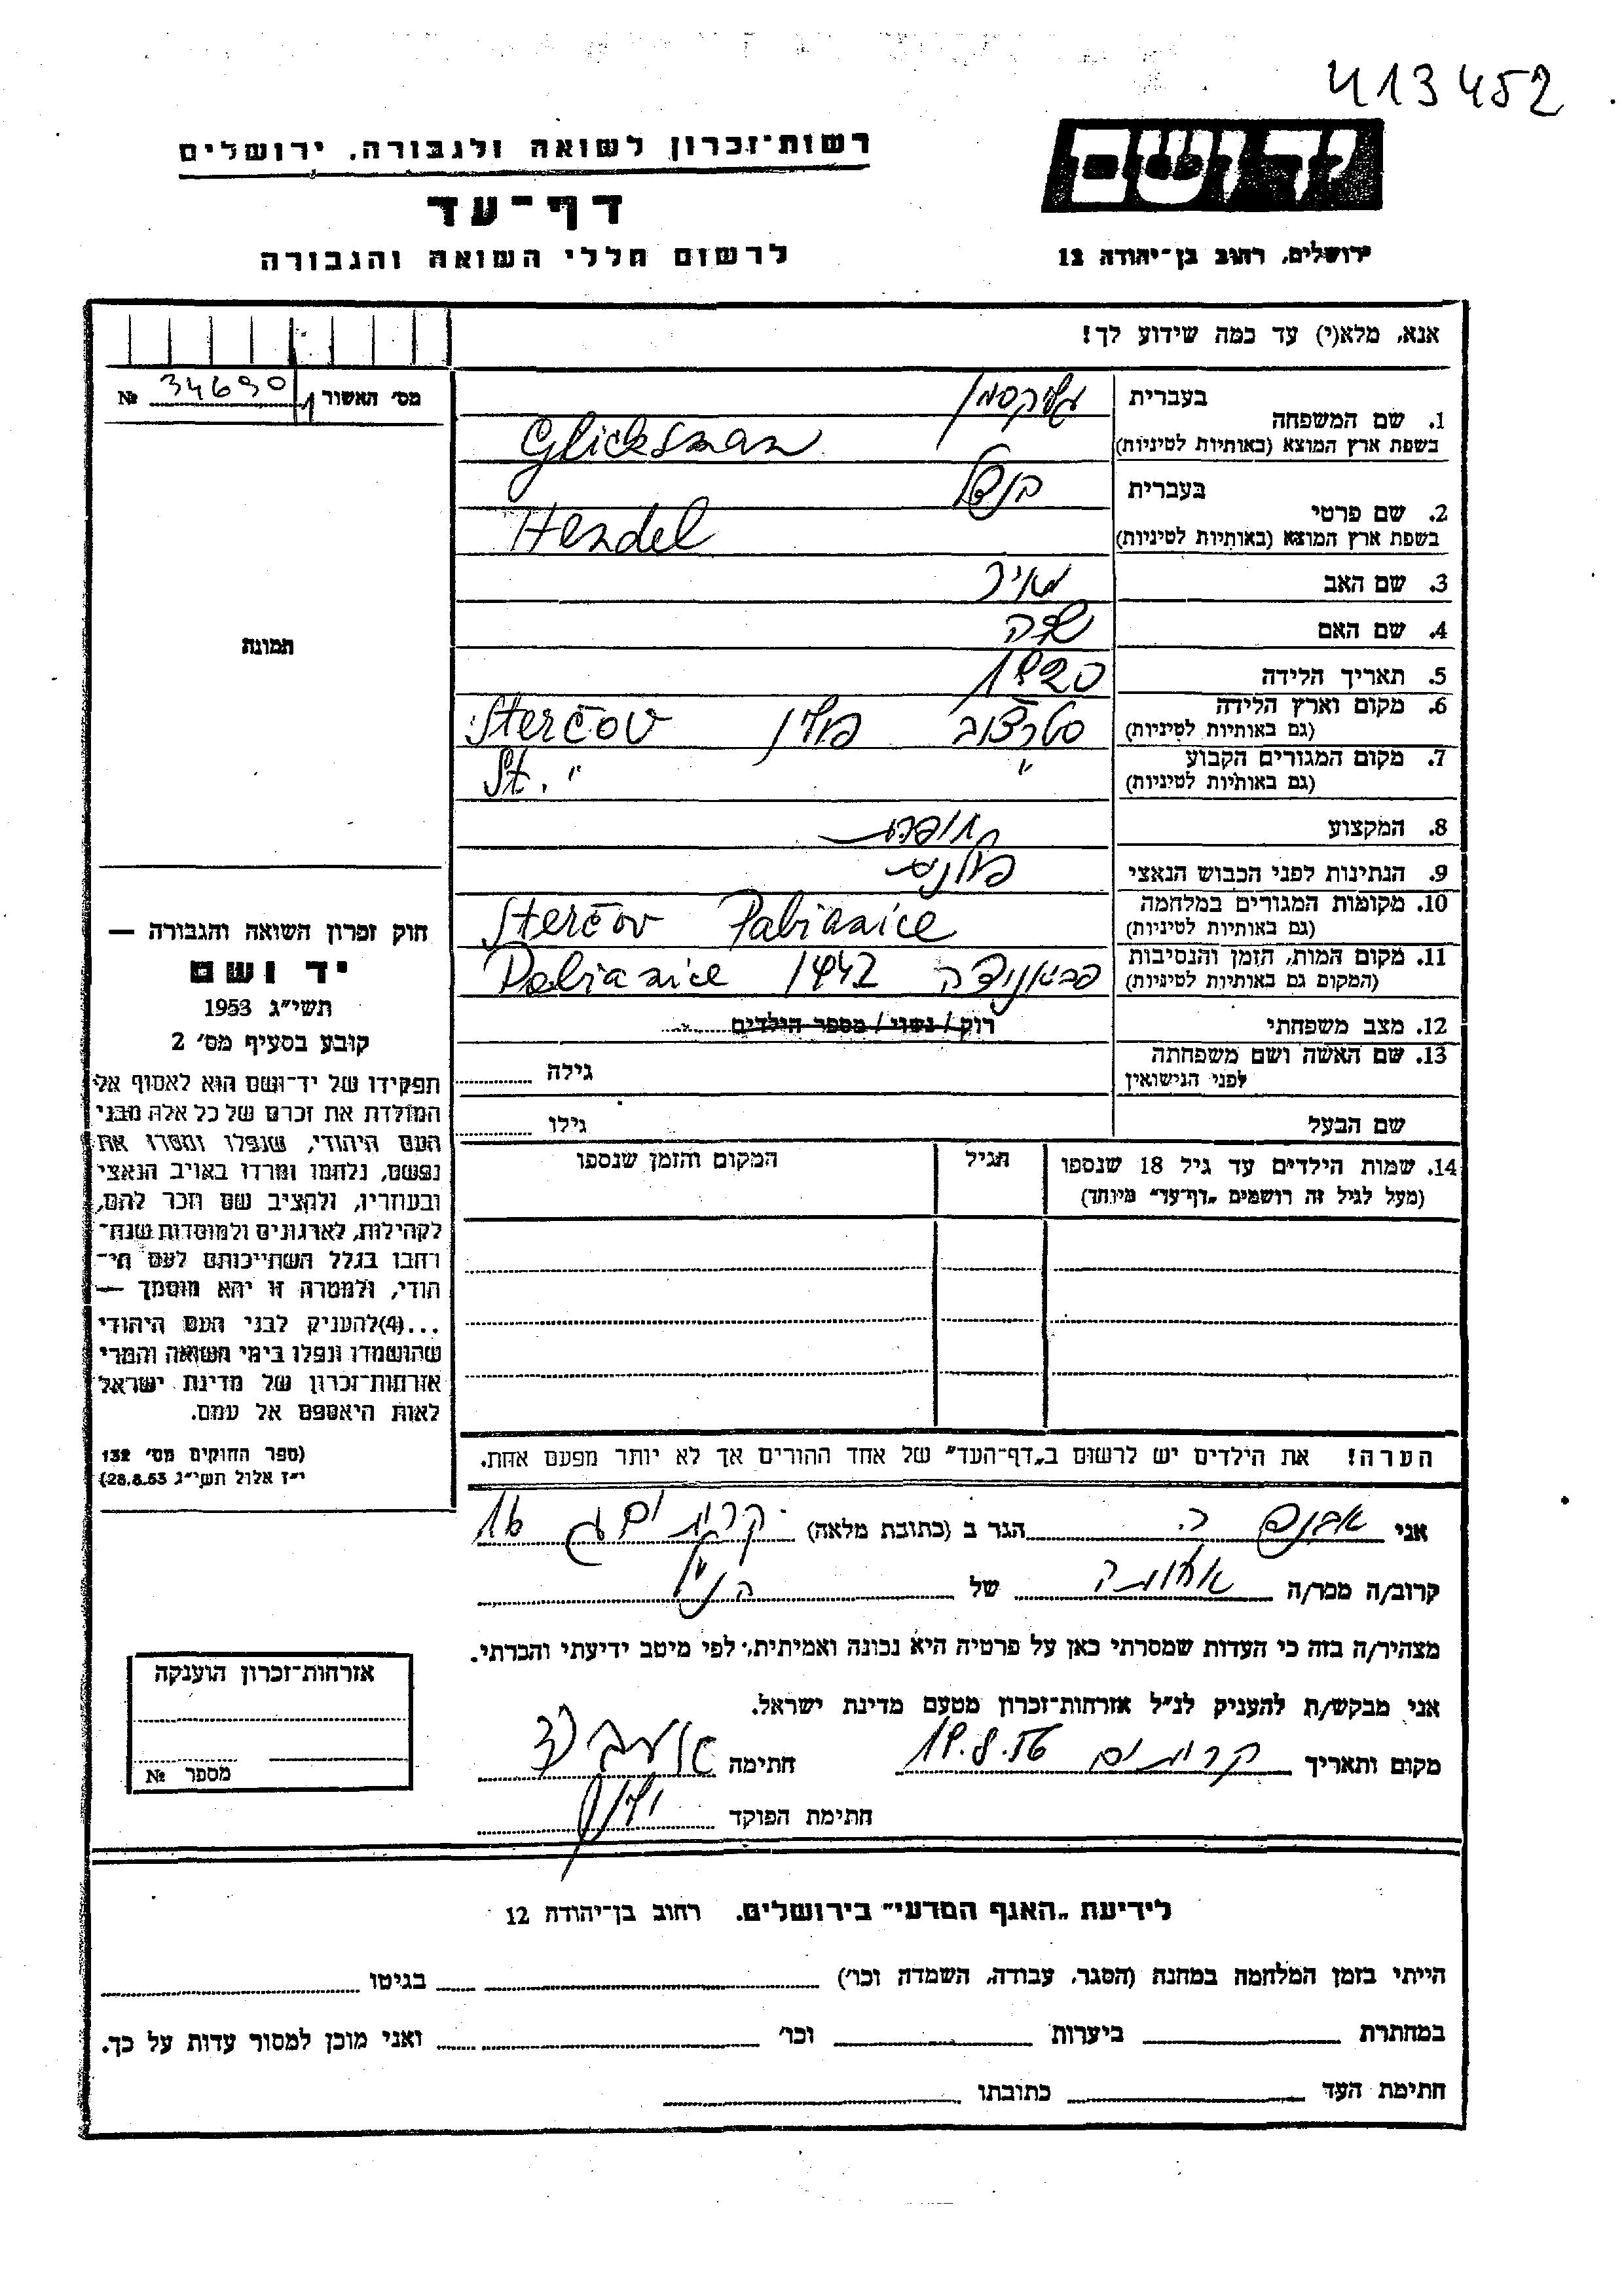 413452
יד ושם
ירושלים, רחוב בן־יהודה 12
רשות־זכרון לשואה ולגבורה, ירושלים
דף־עד
לרשום חללי השואה והגבורה
אנא, מלא(י) עד כמה שידוע לך!
מס' האשור № 34690
1. שם המשפחה
בעברית גליקסמן
בשפת ארץ המוצא (באותיות לטיניות) Glicksman
2. שם פרטי
בעברית הנדל
בשפת ארץ המוצא (באותיות לטיניות) Hendel
3. שם האב מאיר
4. שם האם שרה
5. תאריך הלידה 1920
6. מקום וארץ הלידה סטרצוב פולין Sterčov
(גם באותיות לטיניות)
7. מקום המגורים הקבוע " St. "
(גם באותיות לטיניות)
8. המקצוע תופרת
9. הנתינות לפני הכבוש הנאצי פולנית
10. מקומות המגורים במלחמה Sterčov Pabianice
(גם באותיות לטיניות)
11. מקום המות, הזמן והנסיבות Pabianice 1942
(המקום גם באותיות לטיניות)
12. מצב משפחתי רוק / נשוי / מספר הילדים
13. שם האשה ושם משפחתה גילה
לפני הנישואין
שם הבעל גילו
14. שמות הילדים עד גיל 18 שנספו הגיל המקום והזמן שנספו
(מעל לגיל זה רושמים „דף־עד" מיוחד)
הערה! את הילדים יש לרשום ב„דף־העד" של אחד ההורים אך לא יותר מפעם אחת.
תמונה
חוק זכרון השואה והגבורה —
יד ושם
תשי"ג 1953
קובע בסעיף מס' 2
תפקידו של יד־ושם הוא לאסוף אל
המולדת את זכרם של כל אלה מבני
העם היהודי, שנפלו ומסרו את
נפשם, נלחמו ומרדו באויב הנאצי
ובעוזריו, ולהציב שם וזכר להם,
לקהילות, לארגונים ולמוסדות שנח־
רבו בגלל השתייכותם לעם הי־
הודי, ולמטרה זו יהא מוסמך —
...(4)להעניק לבני העם היהודי
שהושמדו ונפלו בימי השואה והמרי
אזרחות־זכרון של מדינת ישראל
לאות היאספם אל עמם.
(ספר החוקים מס' 132
י"ז אלול תשי"ג 28.8.53)
אני ה. הגר ב (כתובת מלאה) קרית ים 16
קרוב/ה מכר/ה אחותה של הנ"ל
מצהיר/ה בזה כי העדות שמסרתי כאן על פרטיה היא נכונה ואמיתית, לפי מיטב ידיעתי והכרתי.
אני מבקש/ת להעניק לנ"ל אזרחות־זכרון מטעם מדינת ישראל.
מקום ותאריך קרית ים 19.8.56 חתימה
חתימת הפוקד
אזרחות־זכרון הוענקה
מספר №
לידיעת „האגף המדעי" בירושלים, רחוב בן־יהודה 12
הייתי בזמן המלחמה במחנה (הסגר, עבודה, השמדה וכו') בגיטו
במחתרת ביערות וכו' ואני מוכן למסור עדות על כך.
חתימת העד כתובתו